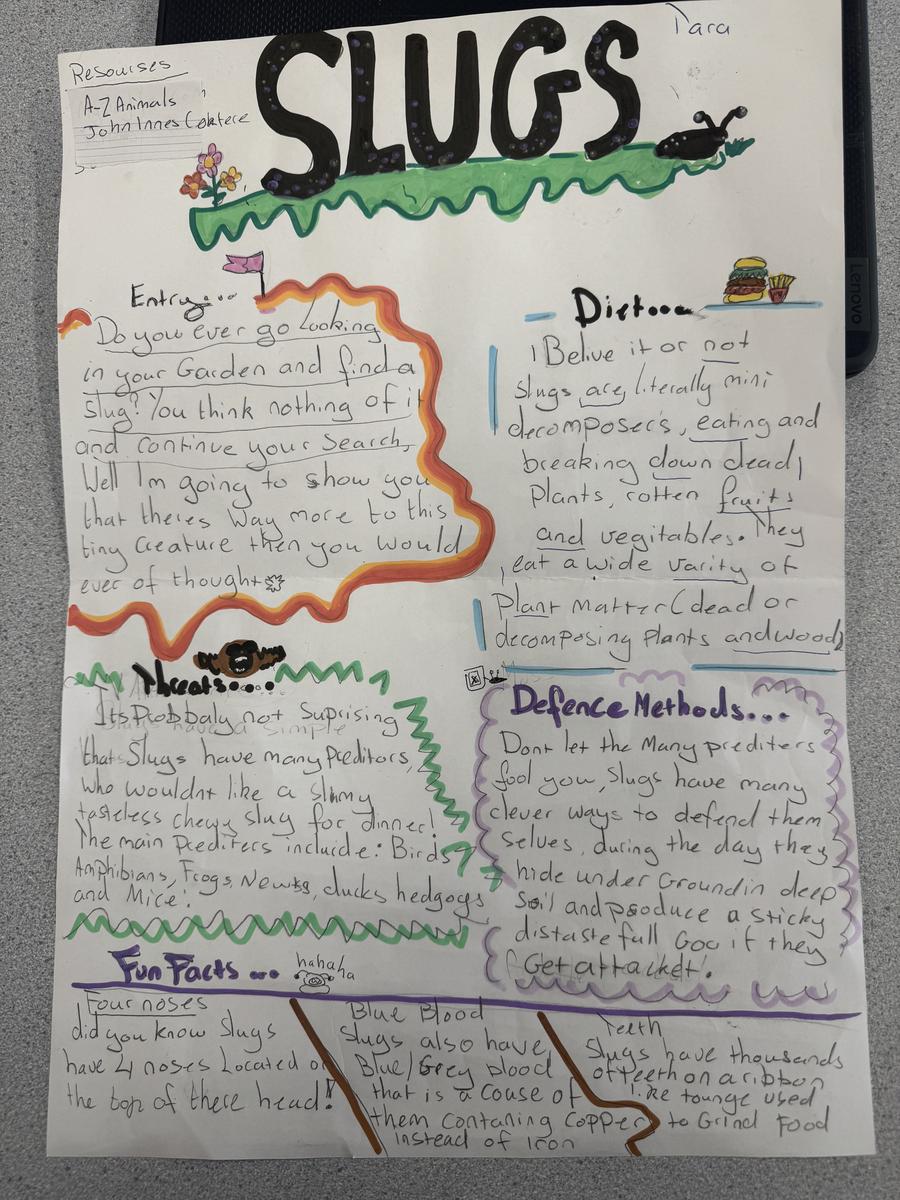 Tara
SLUGS
Resourses
A-Z Animals
John Innes
Entry...
Do you ever go Looking
in your Garden and find a
slug? You think nothing of it
and continue your Search,
Well Im going to show you
that theres Way more to this
tiny Creature then you Would
ever of thought
Diet...
Belive it or not
Slugs are, literally mini
decomposers, eating and
breaking down dead
Plants, rotten fruits
and vegitables. They
eat a wide varity of
Plant matter (dead or
decomposing Plants and wood)
Threats....
Its Probbaly not Suprising
that Slugs have many Preditors,
who wouldnt like a slimy
tasteless chewy slug for dinner!
The main Prediters include: Birds
Amphibians, Frogs, Newts, ducks hedgogs
and Mice!
Defence Methods...
Dont let the Many prediters
fool you, Slugs have many
clever ways to defend them
selves, during the day they
hide under Ground in deep
Soil and produce a sticky
distaste full Goo if they
Get attacket!
Fun Facts ...
hahaha
Four noses
did you know Slugs
have 4 noses Located on
the top of there head!
Blue Blood
Slugs also have
Blue/Grey blood
that is a cause of
them contaning Copper
instead of Iron
Teeth
Slugs have thousands
of teeth on a ribbon
like tounge used
to Grind Food
Lenovo